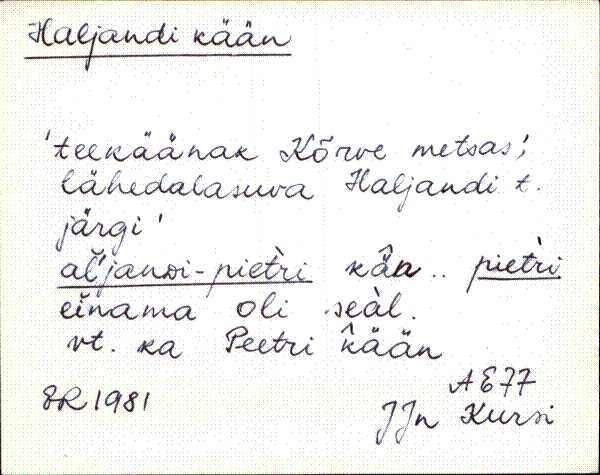 Haljandi kään
'teekäänak Kõrve metsas;
lähedalasuva Haljandi t.
järgi'
al̆'janDi-piet̀ri kä̂n .. piet̀ri
eĭnama oli seàl.
vt. ka Peetri kään
ER 1981 AE77
JJn Kursi